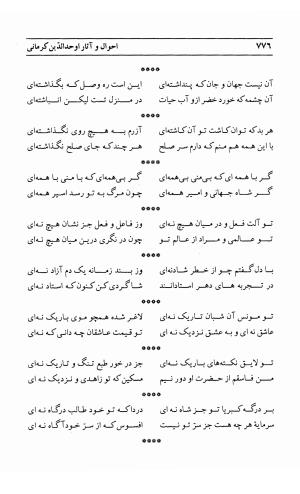 ۷۷۶ احوال و آثار اوحدالدّین کرمانی
****
آن نیست جهان و جان که پنداشته‌ای این است ره وصل که بگذاشته‌ای
آن چشمه که خورد خضر ازو آب حیات در منزل تست لیکن انباشته‌ای
****
هر بد که توان کاشت تو آن کاشته‌ای آزرم به هیچ روی نگذاشته‌ای
با این همه هم منم که دارم سر صلح هر چند که جای صلح نگذاشته‌ای
****
گر با همه‌ای که بی‌منی بی‌همه‌ای گر بی‌همه‌ای که با منی با همه‌ای
گر شاه جهانی و امیر همه‌ای چون مرگ به تو رسد اسیر همه‌ای
****
تو آلت فعل و در میان هیچ نه‌ای وز فاعل و فعل جز نشان هیچ نه‌ای
تو عالمی و مراد از عالم تو چون در نگری درین میان هیچ نه‌ای
****
با دل گفتم چو از خطر شادنه‌ای وز بند زمانه یک دم آزاد نه‌ای
در تجربه‌های دهر استادانند شاگردی کن کنون که استاد نه‌ای
****
تو مونس آن شبان تاریک نه‌ای لاغر شده همچو موی باریک نه‌ای
عاشق نه‌ای و به عشق نزدیک نه‌ای تو قیمت عاشقان چه دانی که نه‌ای
****
تو لایق نکته‌های باریک نه‌ای جز در خور طبع تنگ و تاریک نه‌ای
من فاسقم از حضرت او دور نیم مسکین که تو زاهدی و نزدیک نه‌ای
****
بر درگه کبریا تو جز شاه نه‌ای دردا که تو خود طالب درگاه نه‌ای
سرمایهٔ هر چه هست جز سرّ تو نیست افسوس که از سرّ خود آگاه نه‌ای
****